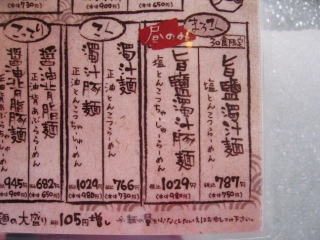 まろこん
昼のみ
30食限定
旨鹽濁汁麺
塩とんこつらーめん
税込787円
(本体750円)
旨鹽濁汁豚麺
塩とんこつちゃーしゅーめん
税込1029円
(本体980円)
こん
濁汁麺
正油とんこつらーめん
税込766円
(本体730円)
濁汁豚麺
正油とんこつちゃーしゅーめん
税込1024円
こってり
醤油背脂麺
正油背あぶららーめん
682円
650円)
醤油背脂豚麺
945円
900円)
麺の大盛り 税込105円増し